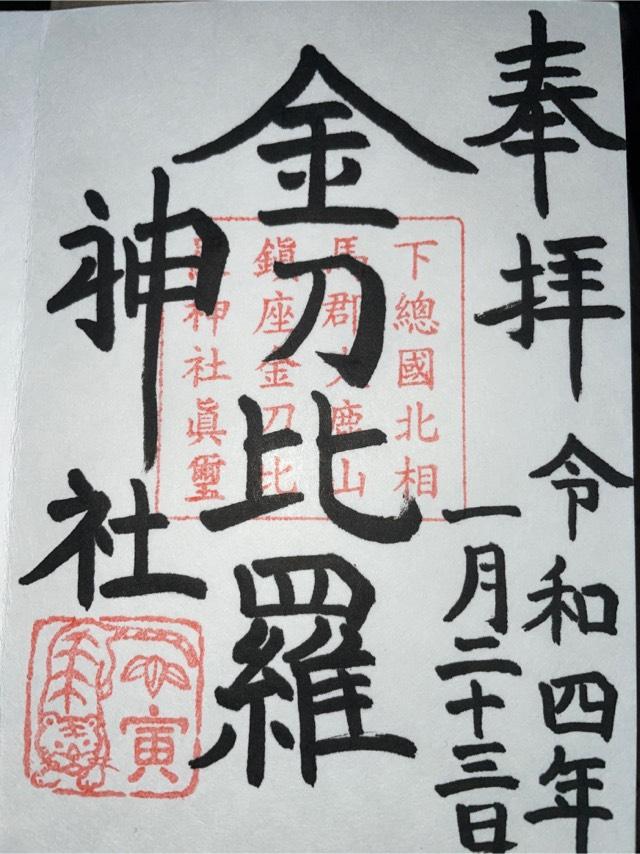 奉拝
令和四年
一月二十三日
金刀比羅
神社
下總國北相
馬郡大鹿山
鎮座金刀比
羅神社眞璽
寅